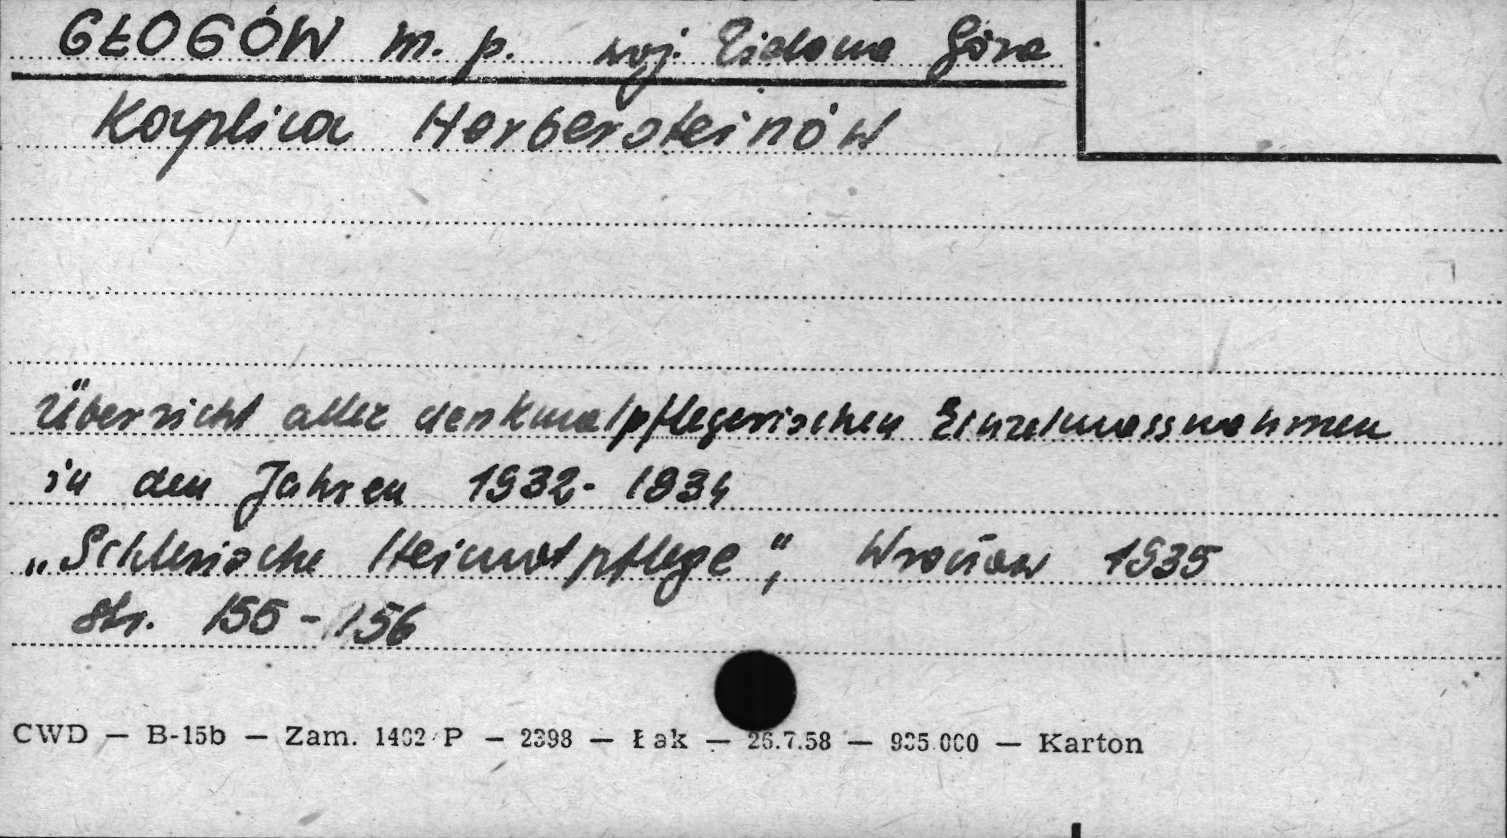 GŁOGÓW m. p. woj. Zielona Góra
Kaplica Herbersteinów
Übersicht aller denkmalpflegerischen Einzelmassnahmen
in den Jahren 1932-1934
„Schlesische Heimatpflege", Wrocław 1935
str. 155-156
CWD — B-15b — Zam. 1402/P — 2398 — Łak — 26.7.58 — 935.000 — Karton